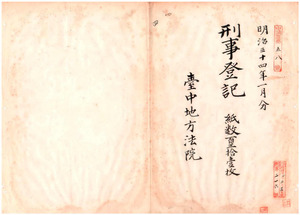 明治三十四年一月分
刑事登記
紙数百拾壹枚
臺中地方法院